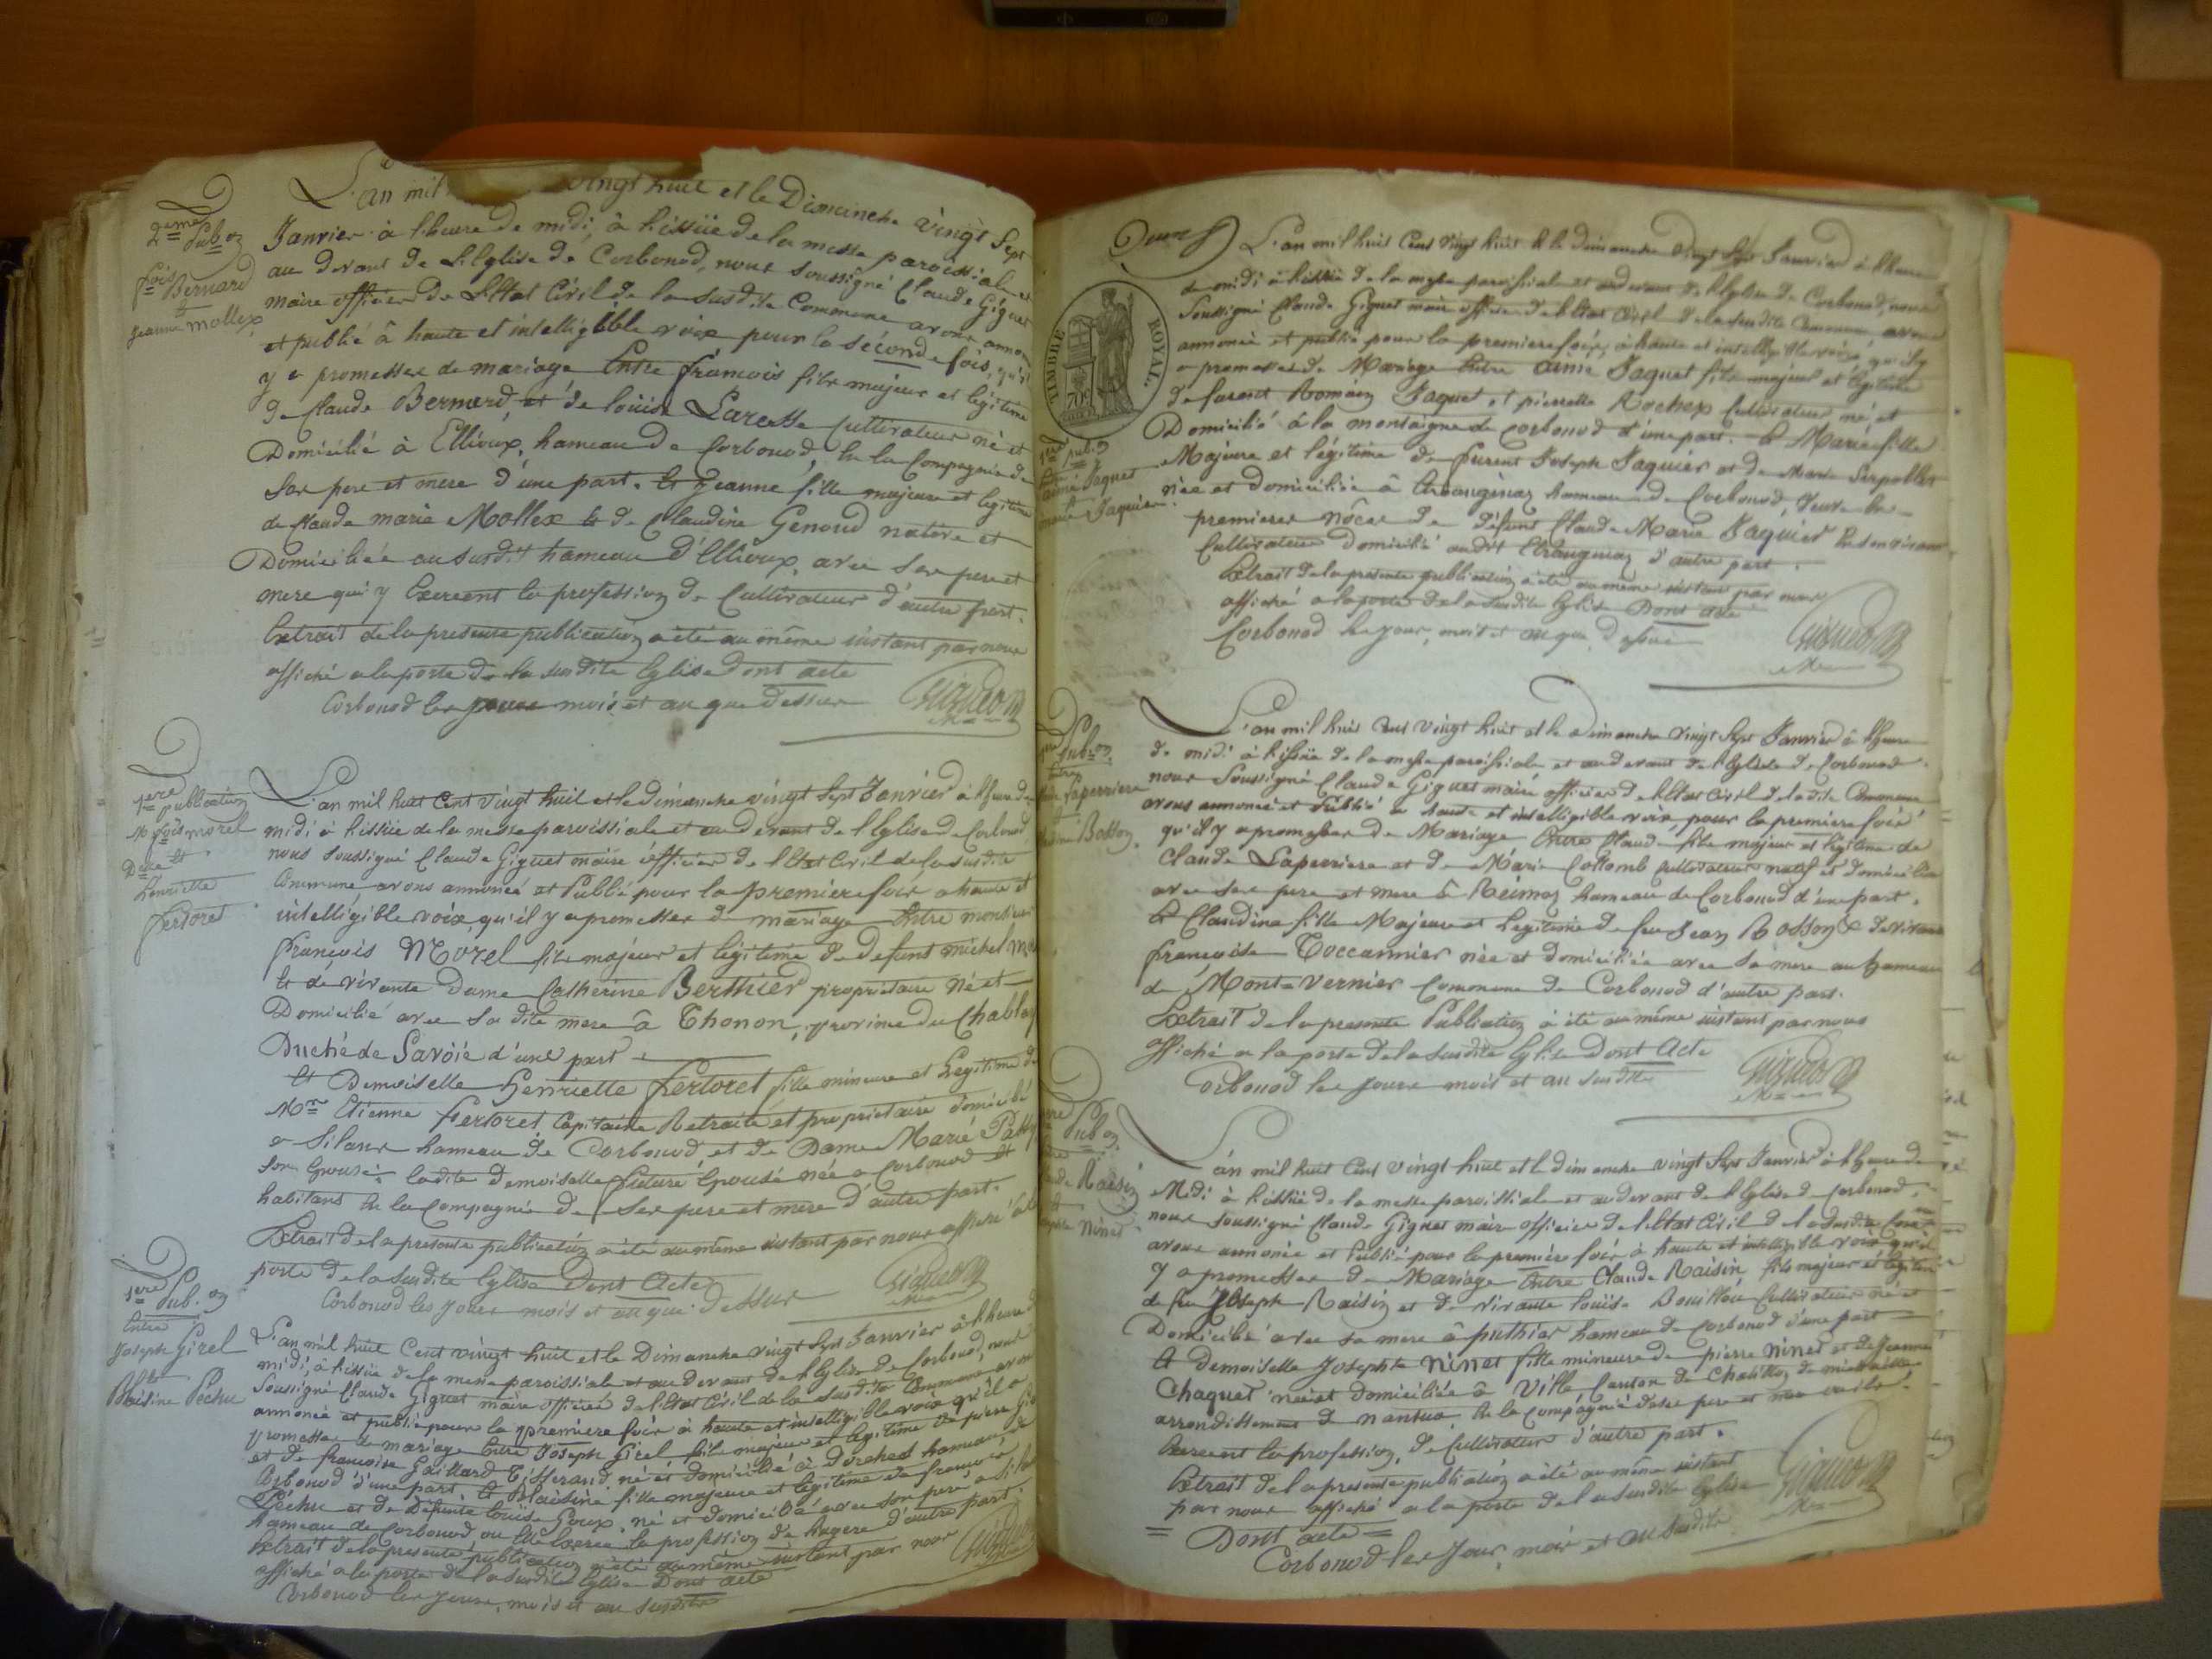 2eme Pub.on
fois Bernard
et
jeanne mollex
L'an mil vingt huit et le Dimanche vingt Sept
Janvier à l'heure de midi, à l'issüe de la messe paroissiale et
au devant de l'Eglise de Corbonod, nous soussigné Claude Giguet
maire officier de l'Etat Civil de la susdite Commune avons annon
et publié à haute et intelligible voix pour la seconde fois, qu'il
y a promesses de mariage Entre françois fils majeur et légitime
de Claude Bernard, et de loüise Laresse Cultivateur né et
Domicilié à Ellioux, hameau de Corbonod, En la Compagnie de
ses pere et mere d'une part. Et Jeanne fille majeure et legitime
de Claude marie Mollex Et de Claudine Genoud native et
Domiciliée au susdit hameau d'Ellioux, avec ses pere et
mere qui y Exercent la profession de Cultivateur d'autre part.
Extrait de la presente publication a été au même instant par nous
affiché a la porte de la susdite Eglise Dont acte
Corbonod les jours mois et an que Dessus
Giguet
1ere publication
M fois morel
Et
Delle
henriette
fertoret
L'an mil huit Cent vingt huit et le Dimanche vingt Sept Janvier à l'heure de
midi à l'issüe de la messe paroissiale et au devant de l'Eglise de Corbonod
nous soussigné Claude Giguet maire officier de l'Etat Civil de la susdite
Commune avons annoncé et Publié pour la premiere fois a haute et
intelligible voix, qu'il y a promesses de mariage Entre monsieur
françois Morel fils majeur et légitime de defunt michel
Et de vivante Dame Catherine Berthier propriétaire né et
Domicilié avec sa dite mere à Thonon, province du Chablay
Duché de Savoie d'une part
Et Demoiselle Henriette fertoret fille mineure et Legitime de
Mr Etienne fertoret Capitaine Retraité et propriétaire domicilié
a Silans hameau de Corbonod et de Dame Marie
son Epouse; ladite Demoiselle future Epouse née a Corbonod Et
habitant En la Compagnie de ses pere et mere d'autre part.
Extrait de la presente publication a été au même instant par nous affiché à la
porte de la susdite Eglise Dont Acte
Corbonod les jours mois et an que Dessus
Giguet
1ere Pub.on
Entre
Joseph Girel
Et
Blaisine Péchu
L'an mil huit Cent vingt huit et le Dimanche vingt Sept Janvier à l'heure de
midi, à l'issüe de la messe paroissiale et au devant de l'Eglise de Corbonod, nous
Soussigné Claude Giguet maire officier de l'Etat Civil de la susdite Commune avons
annoncé et publié pour la premiere fois à haute et intelligible voix qu'il a
promesses de mariage Entre Joseph Girel fils majeur et légitime de pierre
et de françoise Gaillard Tisserand né et domicilié à Dorches hameau de
Corbonod d'une part. Et Blaisine fille majeure et legitime de françois
Péchu et de Defunte loüise Goux, né et domiciliée avec son pere a
hameau de Corbonod ou Elle Exerce la profession de d'autre part.
Extrait de la presente publication a été au même instant par nous
affiché a la porte de la susdite Eglise Dont acte
Corbonod les jours, mois et an susdits
Giguet
TIMBRE ROYAL.
70c
1ere pub.on
aimé Jaquet
marie Jaquier
L'an mil huit Cent vingt huit et le dimanche vingt Sept Janvier à l'heure
de midi à l'issüe de la messe paroissiale et au devant de l'Eglise de Corbonod, nous
Soussigné Claude Giguet maire officier de l'Etat Civil de la susdite Commune avons
annoncé et publié pour la premiere fois, à haute et intelligible voix, qu'il y
a promesses de Mariage Entre aimé Jaquet fils majeur et légitime
de furent Romain Jaquet et pierrette Rochex Cultivateur né et
Domicilié à la montaigne de Corbonod d'une part. Et Marie fille
Majeure et légitime de furent Joseph Jaquier et de Marie Serpollet
née et domiciliée à Etranginaz hameau de Corbonod, Veuve En
premieres nôces de défunt Claude Marie Jaquier En son vivant
Cultivateur domicilié audit Etranginaz d'autre part.
Extrait de la presente publication a été au même instant par nous
affiché a la porte de la susdite Eglise Dont acte
Corbonod les jour, mois et an que Dessus
Giguet
Pub.on
Entre
Laperriere
Et
Bosson
L'an mil huit Cent vingt huit et le Dimanche vingt Sept Janvier à l'heure
de midi à l'issüe de la messe paroissiale et au devant de l'Eglise de Corbonod
nous Soussigné Claude Giguet maire officier de l'Etat Civil de ladite Commune
avons annoncé et Publié a haute et intelligible voix, pour la premiere fois
qu'il y a promesses de Mariage Entre Claude fils majeur et légitime de
Claude Laperriere et de Marie Collomb Cultivateur natif et domicilié
avec ses pere et mere à Reimoz hameau de Corbonod d'une part.
Et Claudine fille Majeure et Legitime de feu Jean Bosson & de vivante
françoise Toccannier née et domiciliée avec sa mere au hameau
de Monte vernier Commune de Corbonod d'autre part.
Extrait de la presente Publication a été au même instant par nous
affiché a la porte de la susdite Eglise Dont Acte
Corbonod les jours mois et an susdits
Giguet
Pub.on
Raisin
Et
ninet
L'an mil huit Cent vingt huit et le dimanche vingt Sept Janvier à l'heure de
Midi à l'issüe de la messe paroissiale et au devant de l'Eglise de Corbonod,
nous soussigné Claude Giguet maire officier de l'Etat Civil de la susdite
avons annoncé et Publié pour la premiere fois à haute et intelligible voix qu'il
y a promesses de Mariage Entre Claude Raisin fils majeur et légitime
de feu Joseph Raisin et de vivante loüise Bouillou Cultivateur né et
Domicilié avec sa mere à puthier hameau de Corbonod d'une part
Et Demoiselle Josephte ninet fille mineure de pierre ninet et de Jeanne
Chaquet née et domiciliée à Ville, Canton de Chatillon de michaille
arrondissement de nantua, En la Compagnie de ses pere et mere
Exercent la profession, de Cultivateur d'autre part.
Extrait de la presente publication a été au même instant
par nous affiché a la porte de la susdite Eglise
= Dont acte =
Corbonod les jour, mois et an susdits
Giguet